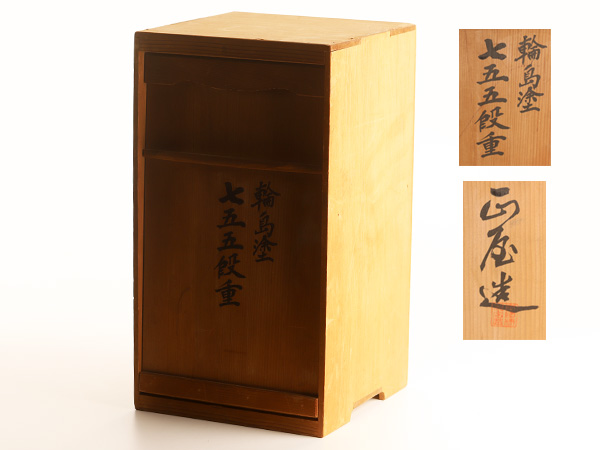 輪島塗
七五五段重
輪島塗
七五五段重
正屋造